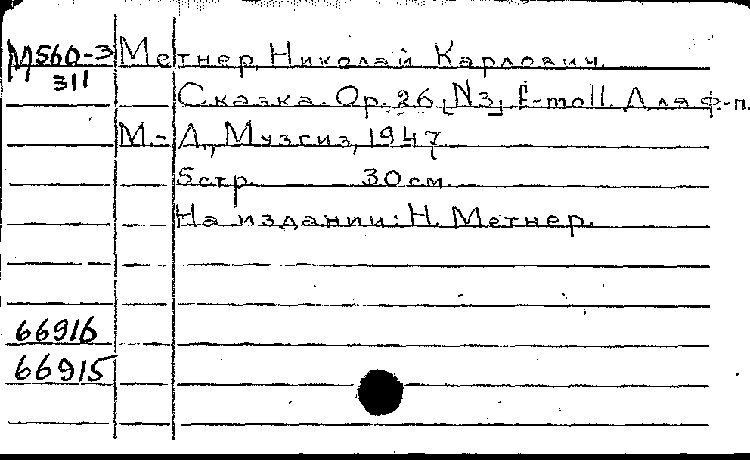 М560-3 Метнер, Николай Карлович.
311
Сказка. Ор. 26, [N3], f-moll. Для ф.-п.
М.-Л., Музгиз, 1947
5 стр. 30 см.
На издании: Н. Метнер.
66916
66915